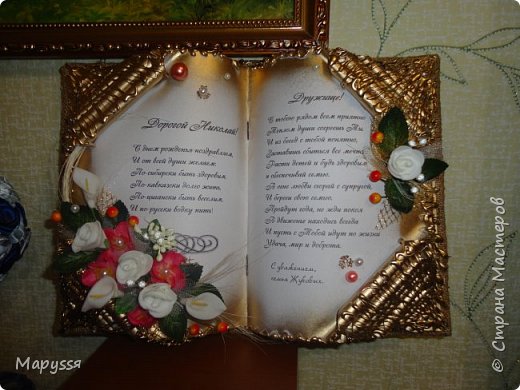 Дорогой Николай!
С днем рождения поздравляем,
И от всей души желаем
По-сибирски быть здоровым,
По-кавказски долго жить,
По-цыгански быть веселым,
И по-русски водку пить!
Дружище!
С тобою рядом всем приятно
Теплом души согреешь Ты,
И из бесед с тобой понятно,
сбыться все мечты
Расти детей и будь здоровым
и обеспечивай семью.
А мы любви скорей с супругой,
И береги свою семью.
Пройдут года, но жди покоя
А движенье находись всегда
И пусть с Тобой идут по жизни
Удача, мир и доброта.
С уважением,
семья Жуковых.
Маруssя
© Страна Мастеров